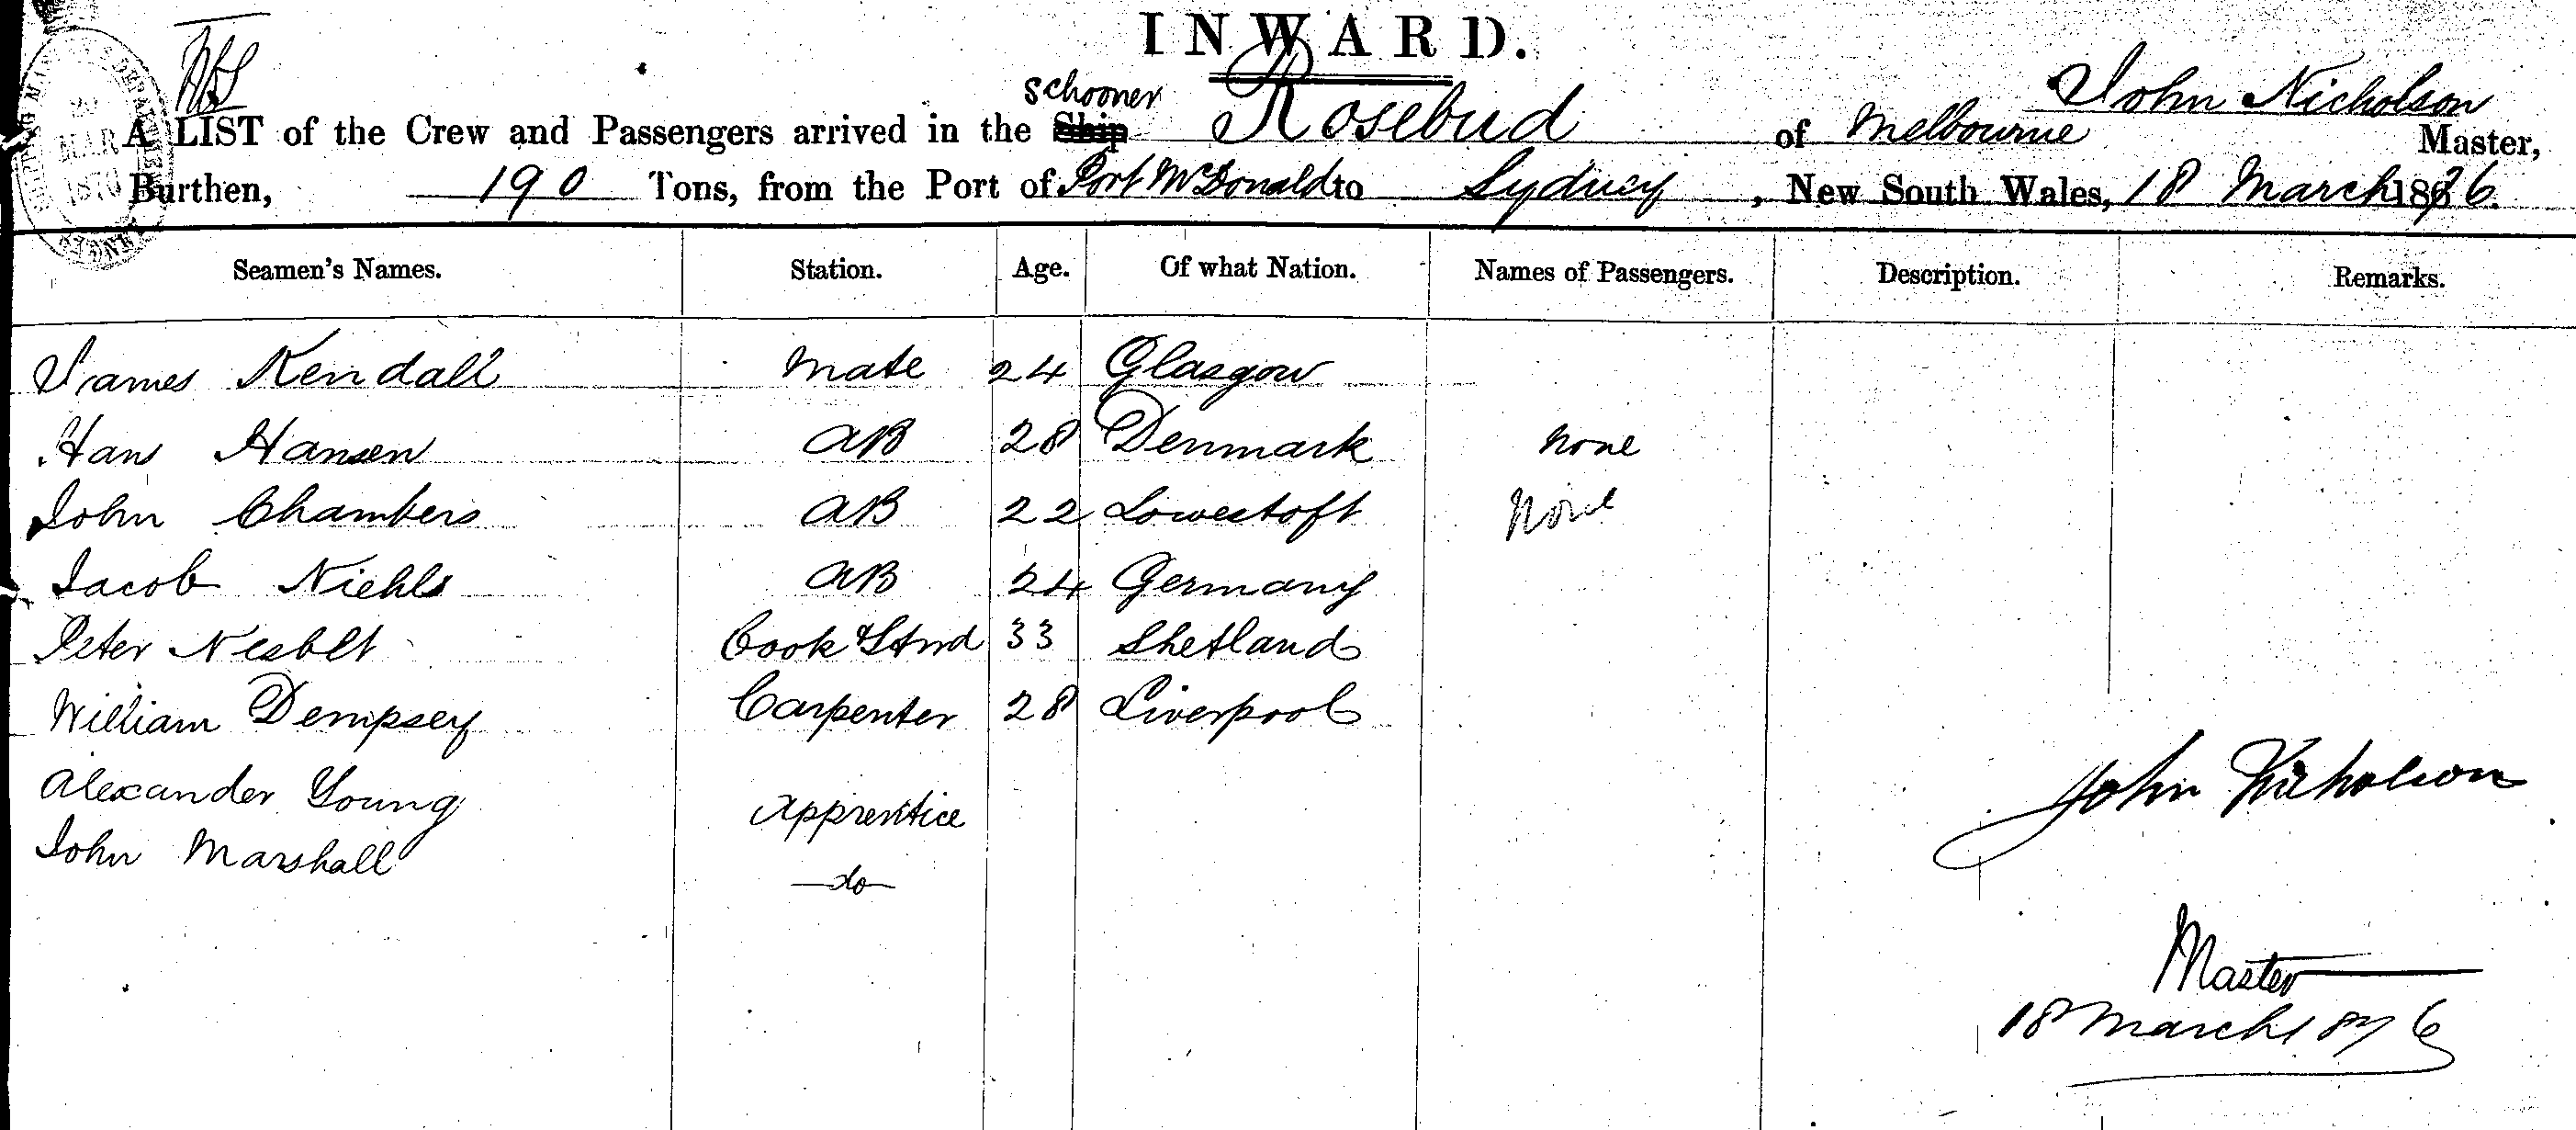 INWARD.
schooner John Nicholson
A LIST of the Crew and Passengers arrived in the Ship Rosebud of Melbourne Master,
Burthen, 190 Tons, from the Port of Port McDonald to Sydney, New South Wales, 18 March 1876.
Seamen's Names. Station. Age. Of what Nation. Names of Passengers. Description. Remarks.
James Kendall Mate 24 Glasgow
Hans Hansen AB 28 Denmark none
John Chambers AB 22 Lowestoft None
Jacob Niehls AB 24 Germany
Peter Nesbet Cook & Stwd 33 Shetland
William Dempsey Carpenter 28 Liverpool
Alexander Young Apprentice John Nicholson
John Marshall do
Master
18 March 1876